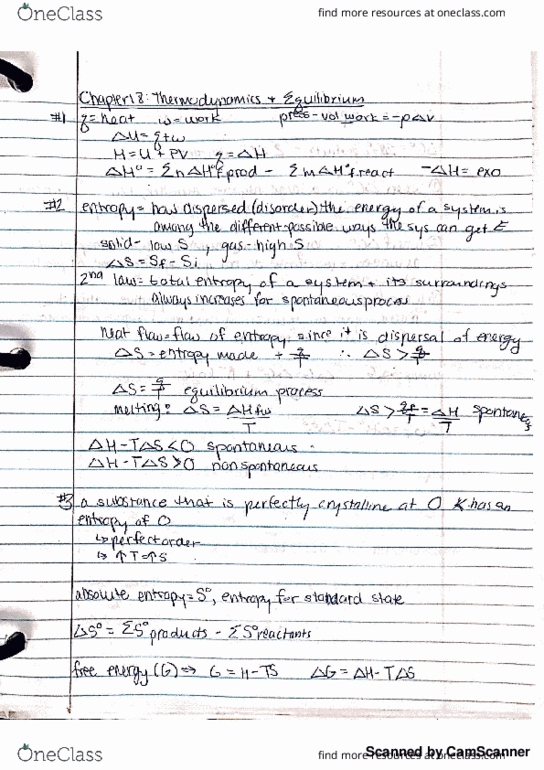 OneClass
find more resources at oneclass.com
Chapter 18: Thermodynamics + Equilibrium
#1 q = heat w = work press-vol work = -pΔV
ΔU = q + w
H = U + PV q = ΔH
ΔH° = ΣnΔH°f prod - ΣmΔH°f react -ΔH = exo
#2 entropy = how dispersed (disorder) the energy of a system is
among the different possible ways the sys can get E
solid - low S, gas - high S
ΔS = Sf - Si
2nd law = total entropy of a system + its surroundings
always increases for spontaneous process
heat flow = flow of entropy since it is dispersal of energy
ΔS = entropy made + q/T ∴ ΔS > q/T
ΔS = q/T equilibrium process
melting: ΔS = ΔHfus/T ΔS > q/T = ΔH/T spontaneous
ΔH - TΔS < 0 spontaneous
ΔH - TΔS > 0 nonspontaneous
#3 a substance that is perfectly crystalline at 0 K has an
entropy of 0
↳ perfect order
↳ ↑T = ↑S
absolute entropy = S°, entropy for standard state
ΔS° = ΣS° products - ΣS° reactants
free energy (G) ⇒ G = H - TS ΔG = ΔH - TΔS
OneClass
find more resources at oneclass.com
Scanned by CamScanner